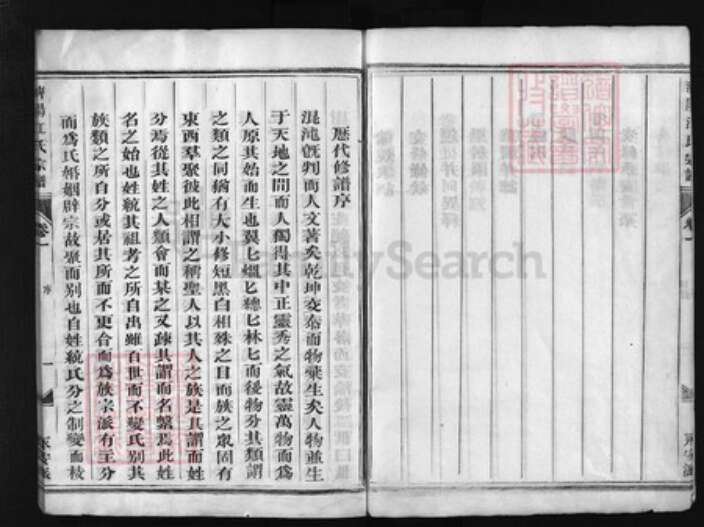 歷代修譜序
混沌旣判而人文著矣乾坤交泰而物彙生矣人物並生
于天地之間而人獨得其中正靈秀之氣故靈萬物而爲
人原其始而生也翼匕熅匕總匕林匕而後物分其類謂
之類之同猶有大小修短黑白相殊之目而族之眾固有
東西羣聚彼此相謂之稱聖人以其人之族是其謂而姓
分焉從其姓之人類會而某之又疎其謂而名繫焉此姓
名之始也姓統其祖考之所自出雖百世而不變氏別其
族類之所自分或居其所而不更合而爲族宗派有主分
而爲氏婚姻辟宗故聚而别也自姓統氏分之制變而枝
濟陽江氏宗譜
卷一
序
一
FamilySearch
卷一